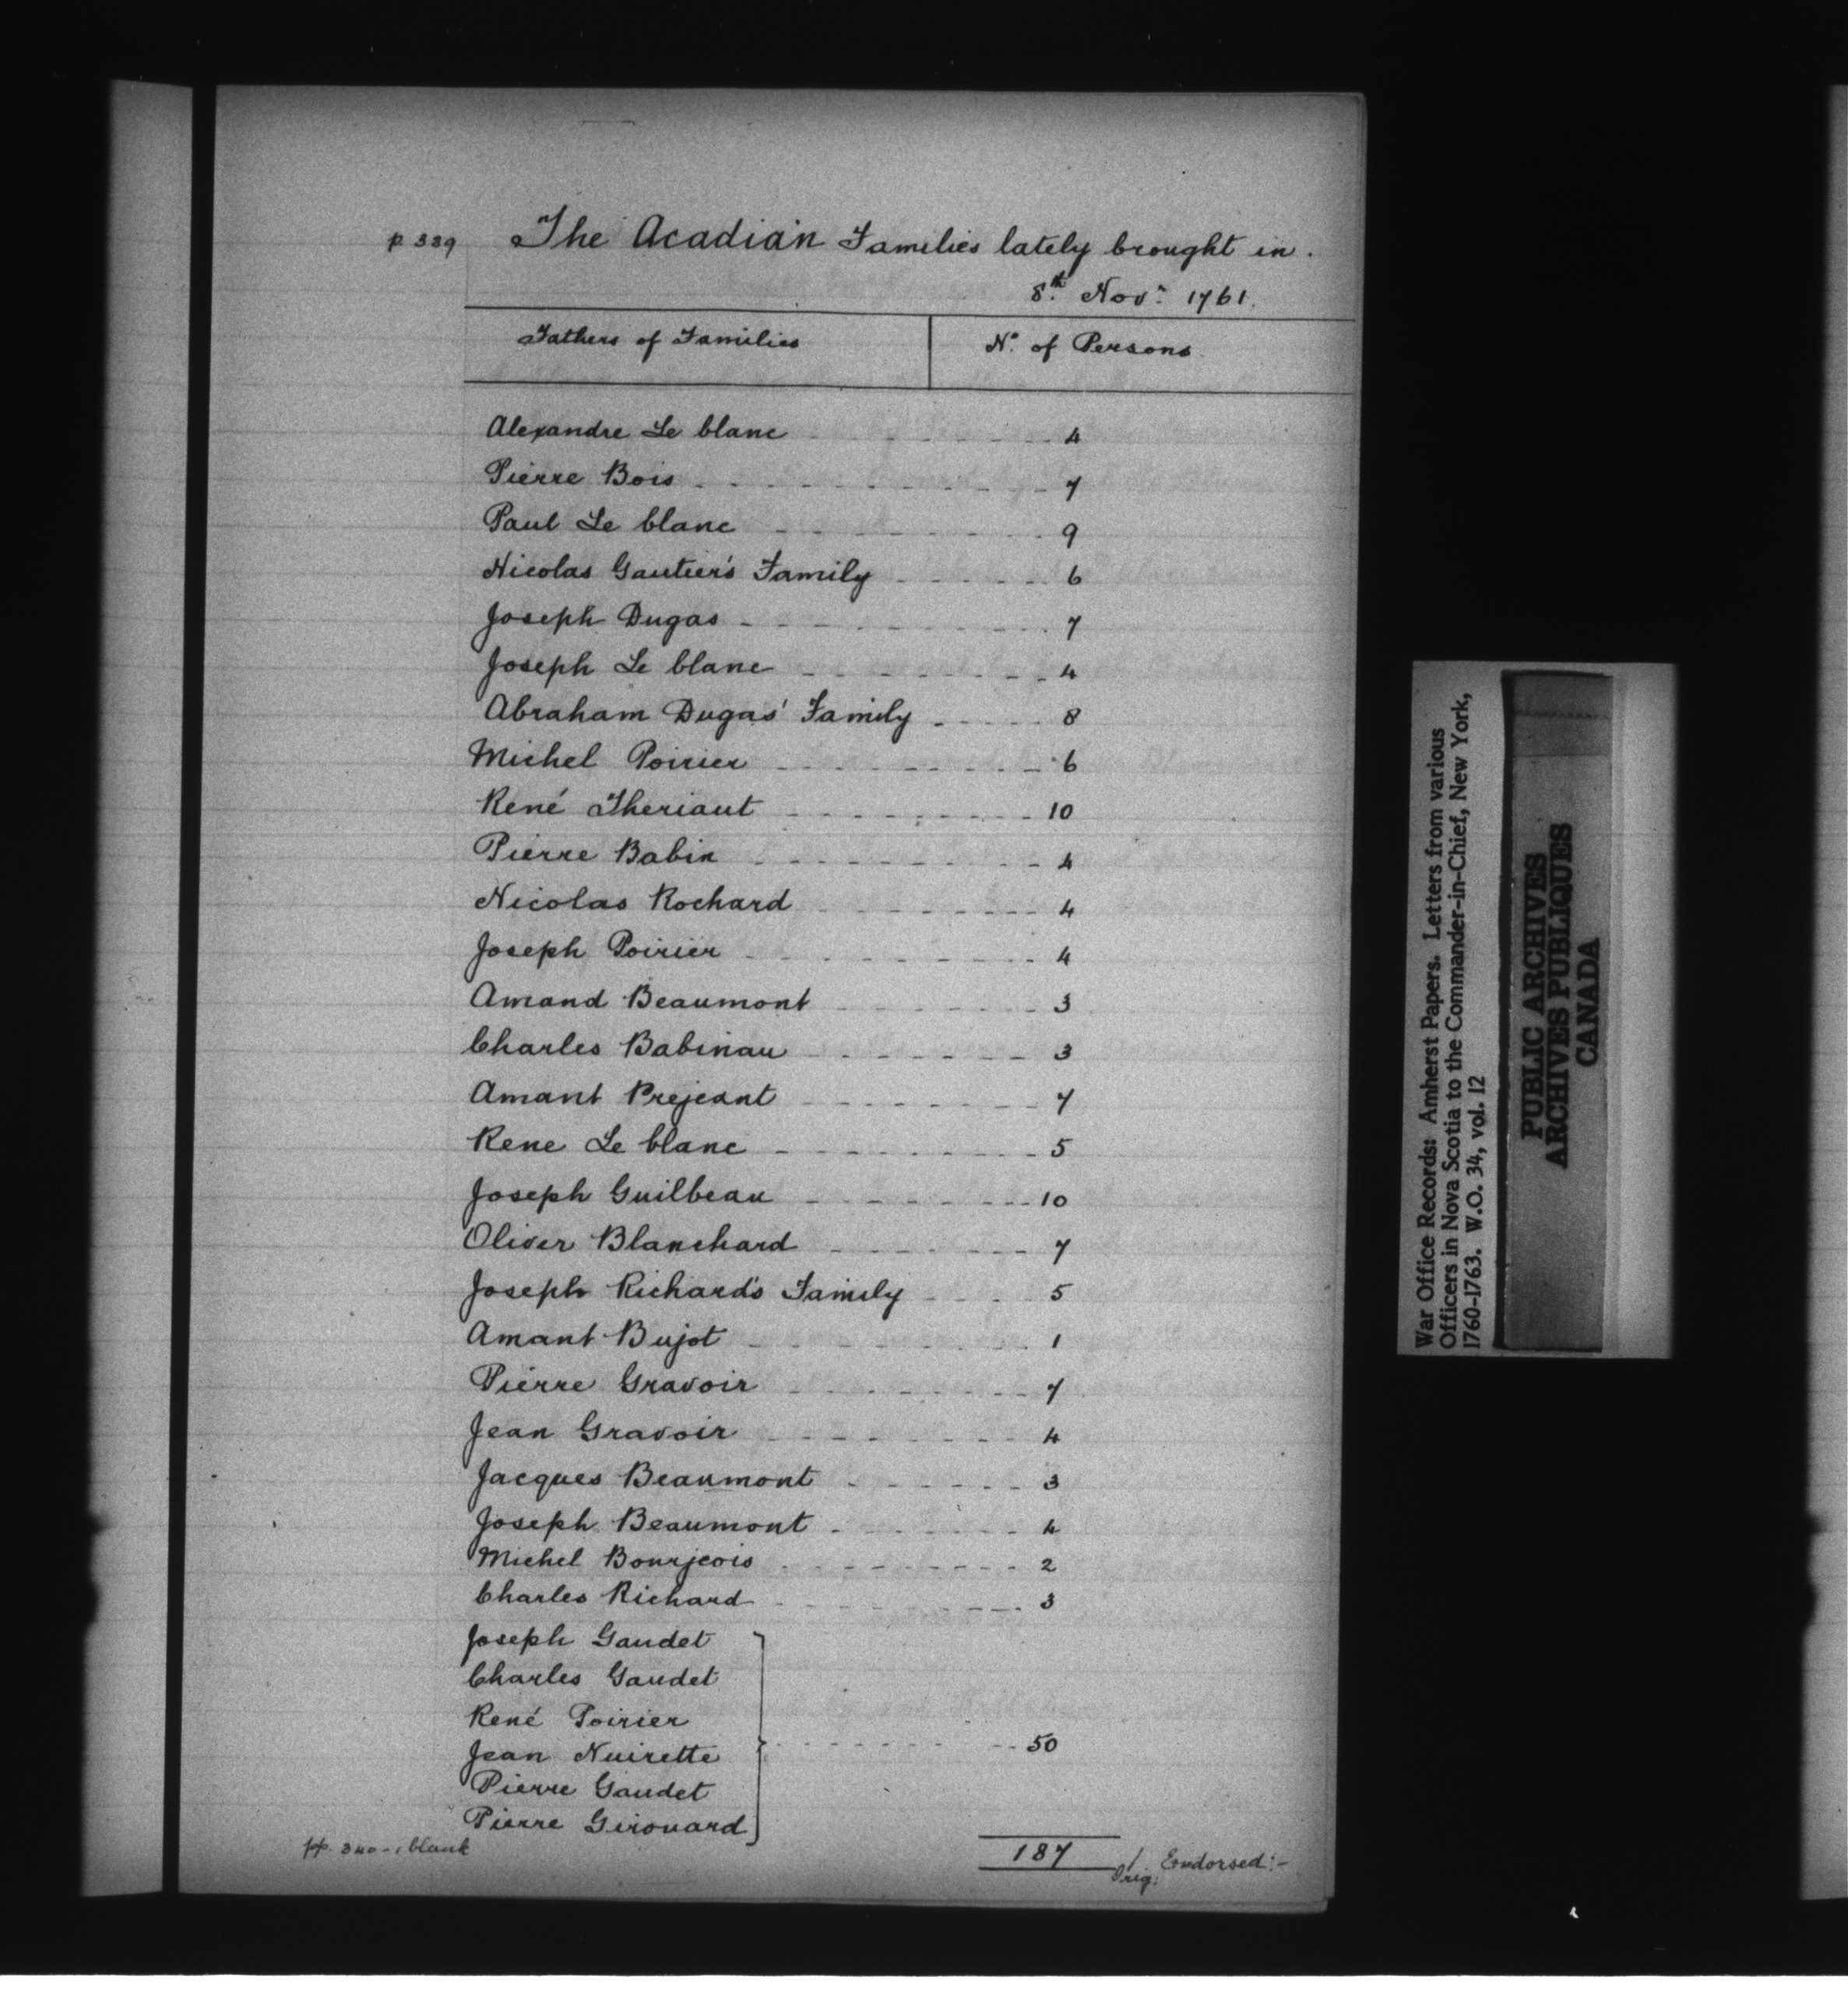 p 339 The Acadian Families lately brought in.
8th Novr 1761.
Fathers of Families No. of Persons
Alexandre Le blanc 4
Pierre Bois 7
Paul Le blanc 9
Nicolas Gautier's Family 6
Joseph Dugas 7
Joseph Le blanc 4
Abraham Dugas' Family 8
Michel Poirier 6
René Theriaut 10
Pierre Babin 4
Nicolas Rochard 4
Joseph Poirier 4
Amand Beaumont 3
Charles Babinau 3
Amant Prejeant 7
Rene Le blanc 5
Joseph Guilbeau 10
Oliver Blanchard 7
Joseph Richard's Family 5
Amant Bujot 1
Pierre Gravoir 7
Jean Gravoir 4
Jacques Beaumont 3
Joseph Beaumont 4
Michel Bourjeois 2
Charles Richard 3
Joseph Gaudet
Charles Gaudet
René Poirier
Jean Nuirette 50
Pierre Gaudet
Pierre Girouard
pp. 340-1 blank 187 / Endorsed:-
Orig:
War Office Records: Amherst Papers. Letters from various
Officers in Nova Scotia to the Commander-in-Chief, New York,
1760-1763. W.O. 34, vol. 12
PUBLIC ARCHIVES
ARCHIVES PUBLIQUES
CANADA